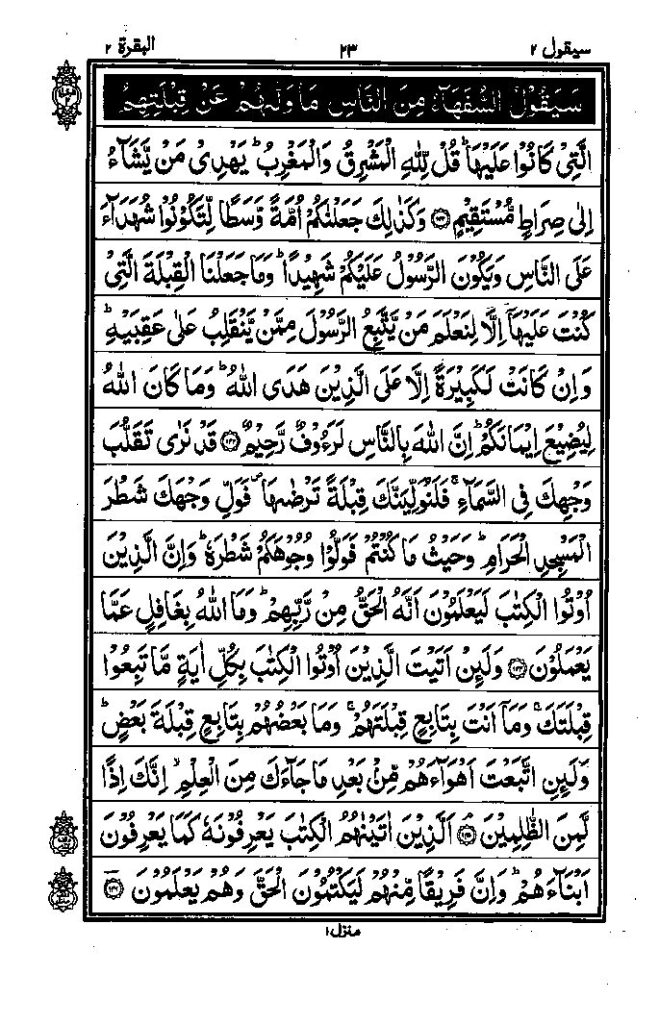 سيقول ٢
٢٣
البقرة ٢
سَيَقُوْلُ السُّفَهَآءُ مِنَ النَّاسِ مَا وَلّٰىهُمْ عَنْ قِبْلَتِهِمُ
الَّتِيْ كَانُوْا عَلَيْهَا ؕ قُلْ لِّلّٰهِ الْمَشْرِقُ وَالْمَغْرِبُ ؕ يَهْدِيْ مَنْ يَّشَآءُ
اِلٰى صِرَاطٍ مُّسْتَقِيْمٍ ﴿۱۴۲﴾ وَكَذٰلِكَ جَعَلْنٰكُمْ اُمَّةً وَّسَطًا لِّتَكُوْنُوْا شُهَدَآءَ
عَلَى النَّاسِ وَيَكُوْنَ الرَّسُوْلُ عَلَيْكُمْ شَهِيْدًا ؕ وَمَا جَعَلْنَا الْقِبْلَةَ الَّتِيْ
كُنْتَ عَلَيْهَآ اِلَّا لِنَعْلَمَ مَنْ يَّتَّبِعُ الرَّسُوْلَ مِمَّنْ يَّنْقَلِبُ عَلٰى عَقِبَيْهِ ؕ
وَاِنْ كَانَتْ لَكَبِيْرَةً اِلَّا عَلَى الَّذِيْنَ هَدَى اللّٰهُ ؕ وَمَا كَانَ اللّٰهُ
لِيُضِيْعَ اِيْمَانَكُمْ ؕ اِنَّ اللّٰهَ بِالنَّاسِ لَرَءُوْفٌ رَّحِيْمٌ ﴿۱۴۳﴾ قَدْ نَرٰى تَقَلُّبَ
وَجْهِكَ فِي السَّمَآءِ ۚ فَلَنُوَلِّيَنَّكَ قِبْلَةً تَرْضٰىهَا ۪ فَوَلِّ وَجْهَكَ شَطْرَ
الْمَسْجِدِ الْحَرَامِ ؕ وَحَيْثُ مَا كُنْتُمْ فَوَلُّوْا وُجُوْهَكُمْ شَطْرَهٗ ؕ وَاِنَّ الَّذِيْنَ
اُوْتُوا الْكِتٰبَ لَيَعْلَمُوْنَ اَنَّهُ الْحَقُّ مِنْ رَّبِّهِمْ ؕ وَمَا اللّٰهُ بِغَافِلٍ عَمَّا
يَعْمَلُوْنَ ﴿۱۴۴﴾ وَلَئِنْ اَتَيْتَ الَّذِيْنَ اُوْتُوا الْكِتٰبَ بِكُلِّ اٰيَةٍ مَّا تَبِعُوْا
قِبْلَتَكَ ۚ وَمَآ اَنْتَ بِتَابِعٍ قِبْلَتَهُمْ ۚ وَمَا بَعْضُهُمْ بِتَابِعٍ قِبْلَةَ بَعْضٍ ؕ
وَلَئِنِ اتَّبَعْتَ اَهْوَآءَهُمْ مِّنْۢ بَعْدِ مَا جَآءَكَ مِنَ الْعِلْمِ ۙ اِنَّكَ اِذًا
لَّمِنَ الظّٰلِمِيْنَ ﴿۱۴۵﴾ اَلَّذِيْنَ اٰتَيْنٰهُمُ الْكِتٰبَ يَعْرِفُوْنَهٗ كَمَا يَعْرِفُوْنَ
اَبْنَآءَهُمْ ؕ وَاِنَّ فَرِيْقًا مِّنْهُمْ لَيَكْتُمُوْنَ الْحَقَّ وَهُمْ يَعْلَمُوْنَ ﴿۱۴۶﴾
منزل ١